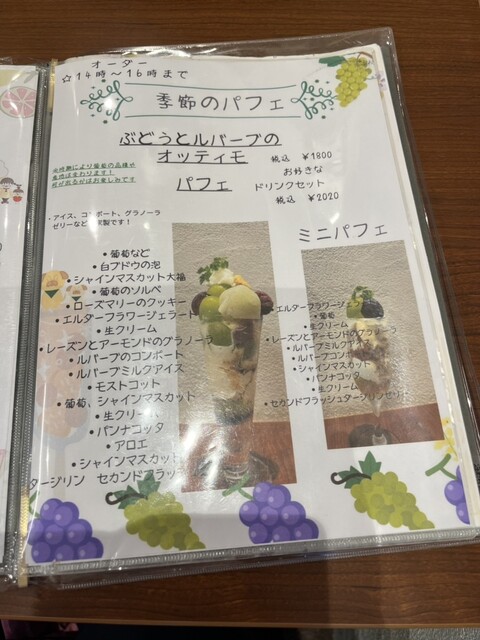 オーダー
☆14時～16時まで
季節のパフェ
ぶどうとルバーブの
オッティモ
パフェ
税込 ¥1800
お好きな
ドリンクセット
税込 ¥2020
※時期により葡萄の品種や
産地は変わります!
何が出るかはお楽しみです
・アイス、コンポート、グラノーラ
ゼリーなど 自家製です!
ミニパフェ
•葡萄など
•白ブドウの泡
•シャインマスカット大福
•葡萄のソルベ
•ローズマリーのクッキー
•エルダーフラワージェラート
•生クリーム
•レーズンとアーモンドのグラノーラ
•ルバーブのコンポート
•ルバーブミルクアイス
•モストコット
•葡萄、シャインマスカット
•生クリーム
•パンナコッタ
•アロエ
•シャインマスカット
ダージリン セカンドフラッシ
•エルダーフラワージ
•葡萄
•生クリーム
•レーズンとアーモンドのグラノーラ
•ルバーブミルクアイス
•ルバーブコンポ
•シャインマスカット
•パンナコッタ
•生クリーム
•セカンドフラッシュダージリンゼリー